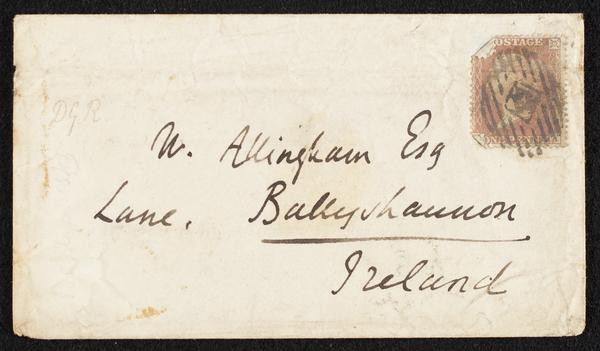 POSTAGE
DGR
W. Allingham Esq
Lane, Ballyshannon
Ireland